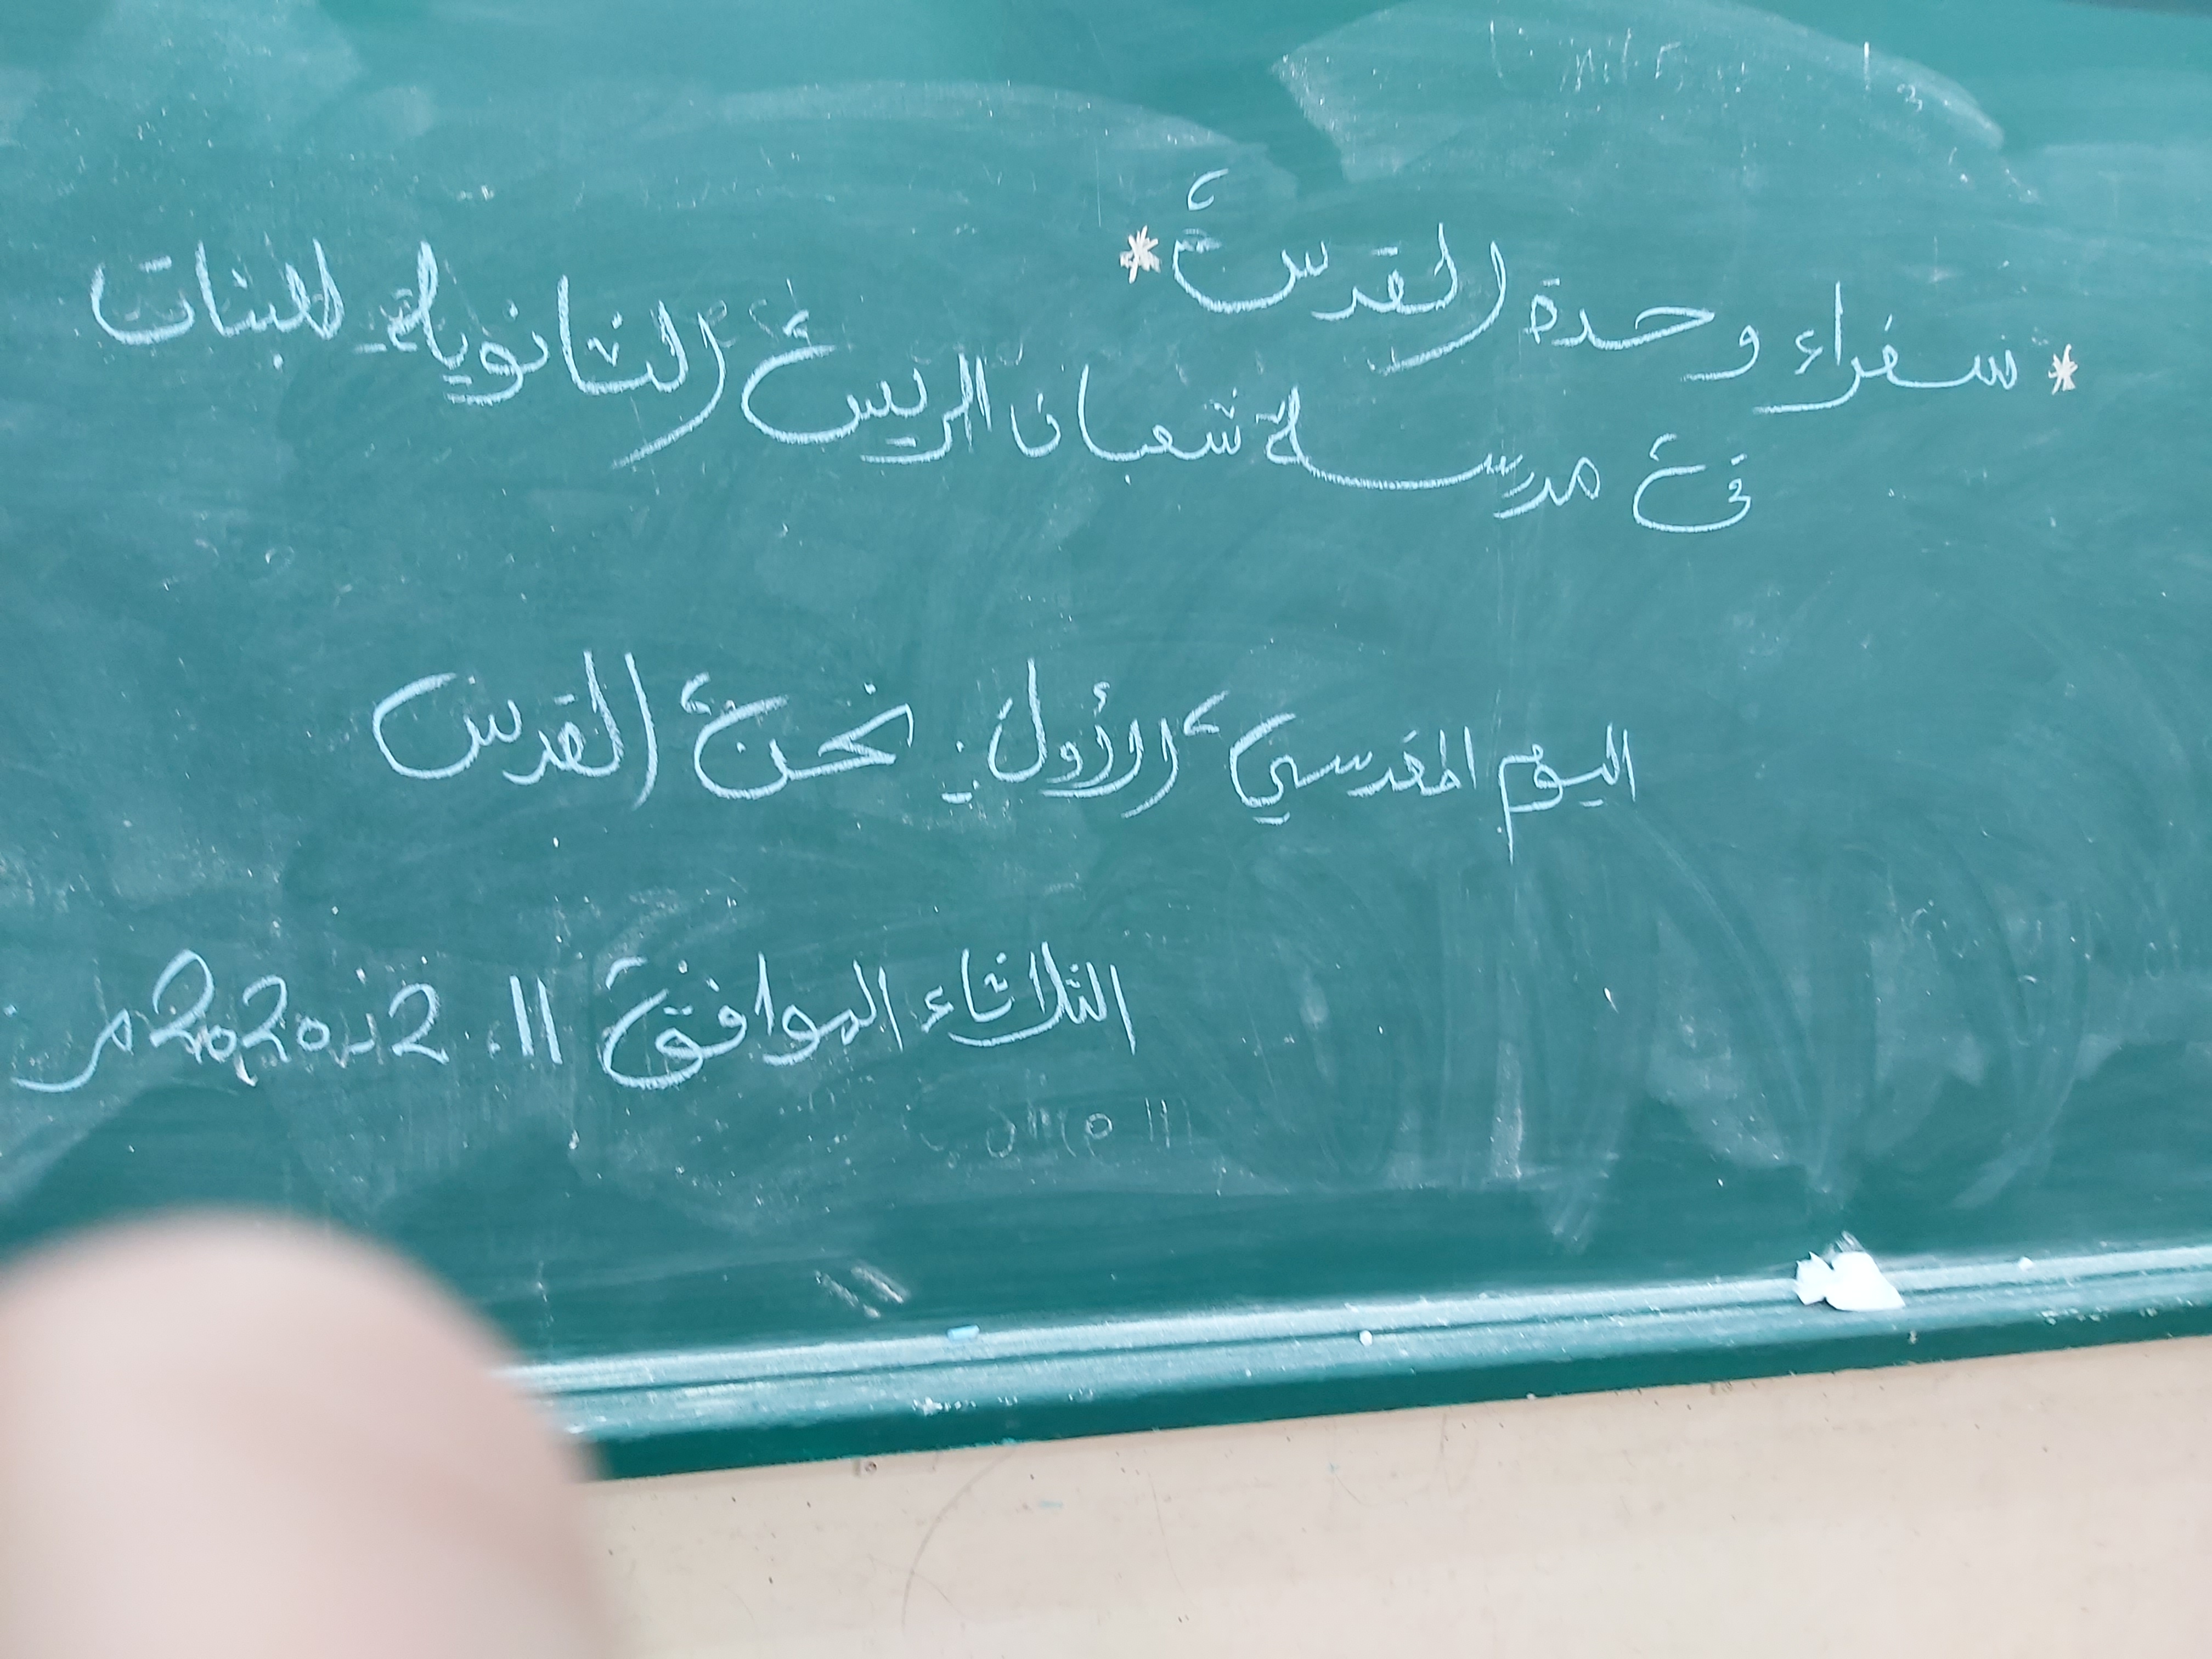 * سفراء وحدة القدس *
في مدرسة شعبان الريس الثانوية للبنات
اليوم المقدسي الأول: نحن القدس
الثلاثاء الموافق 11. 2. 2020م